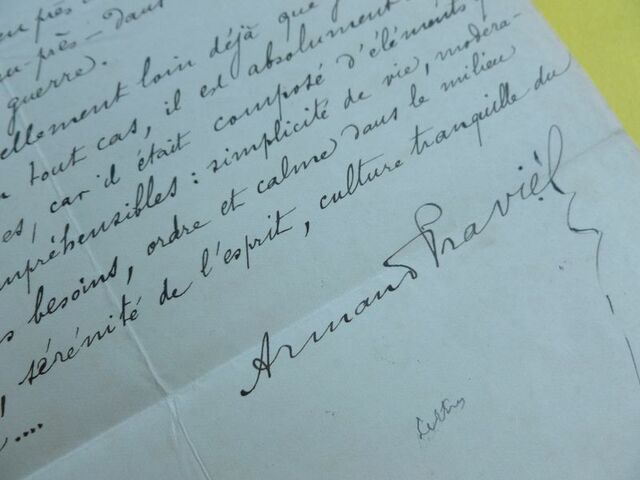 eu près
eu-près — dans
guerre.
ellement loin déjà que
tout cas, il est absolument
es, car il était composé d'éléments
mpréhensibles : simplicité de vie, modéra-
s besoins, ordre et calme dans le milieu
, sérénité de l'esprit, culture tranquille du
....
Armand Praviel
Lettres